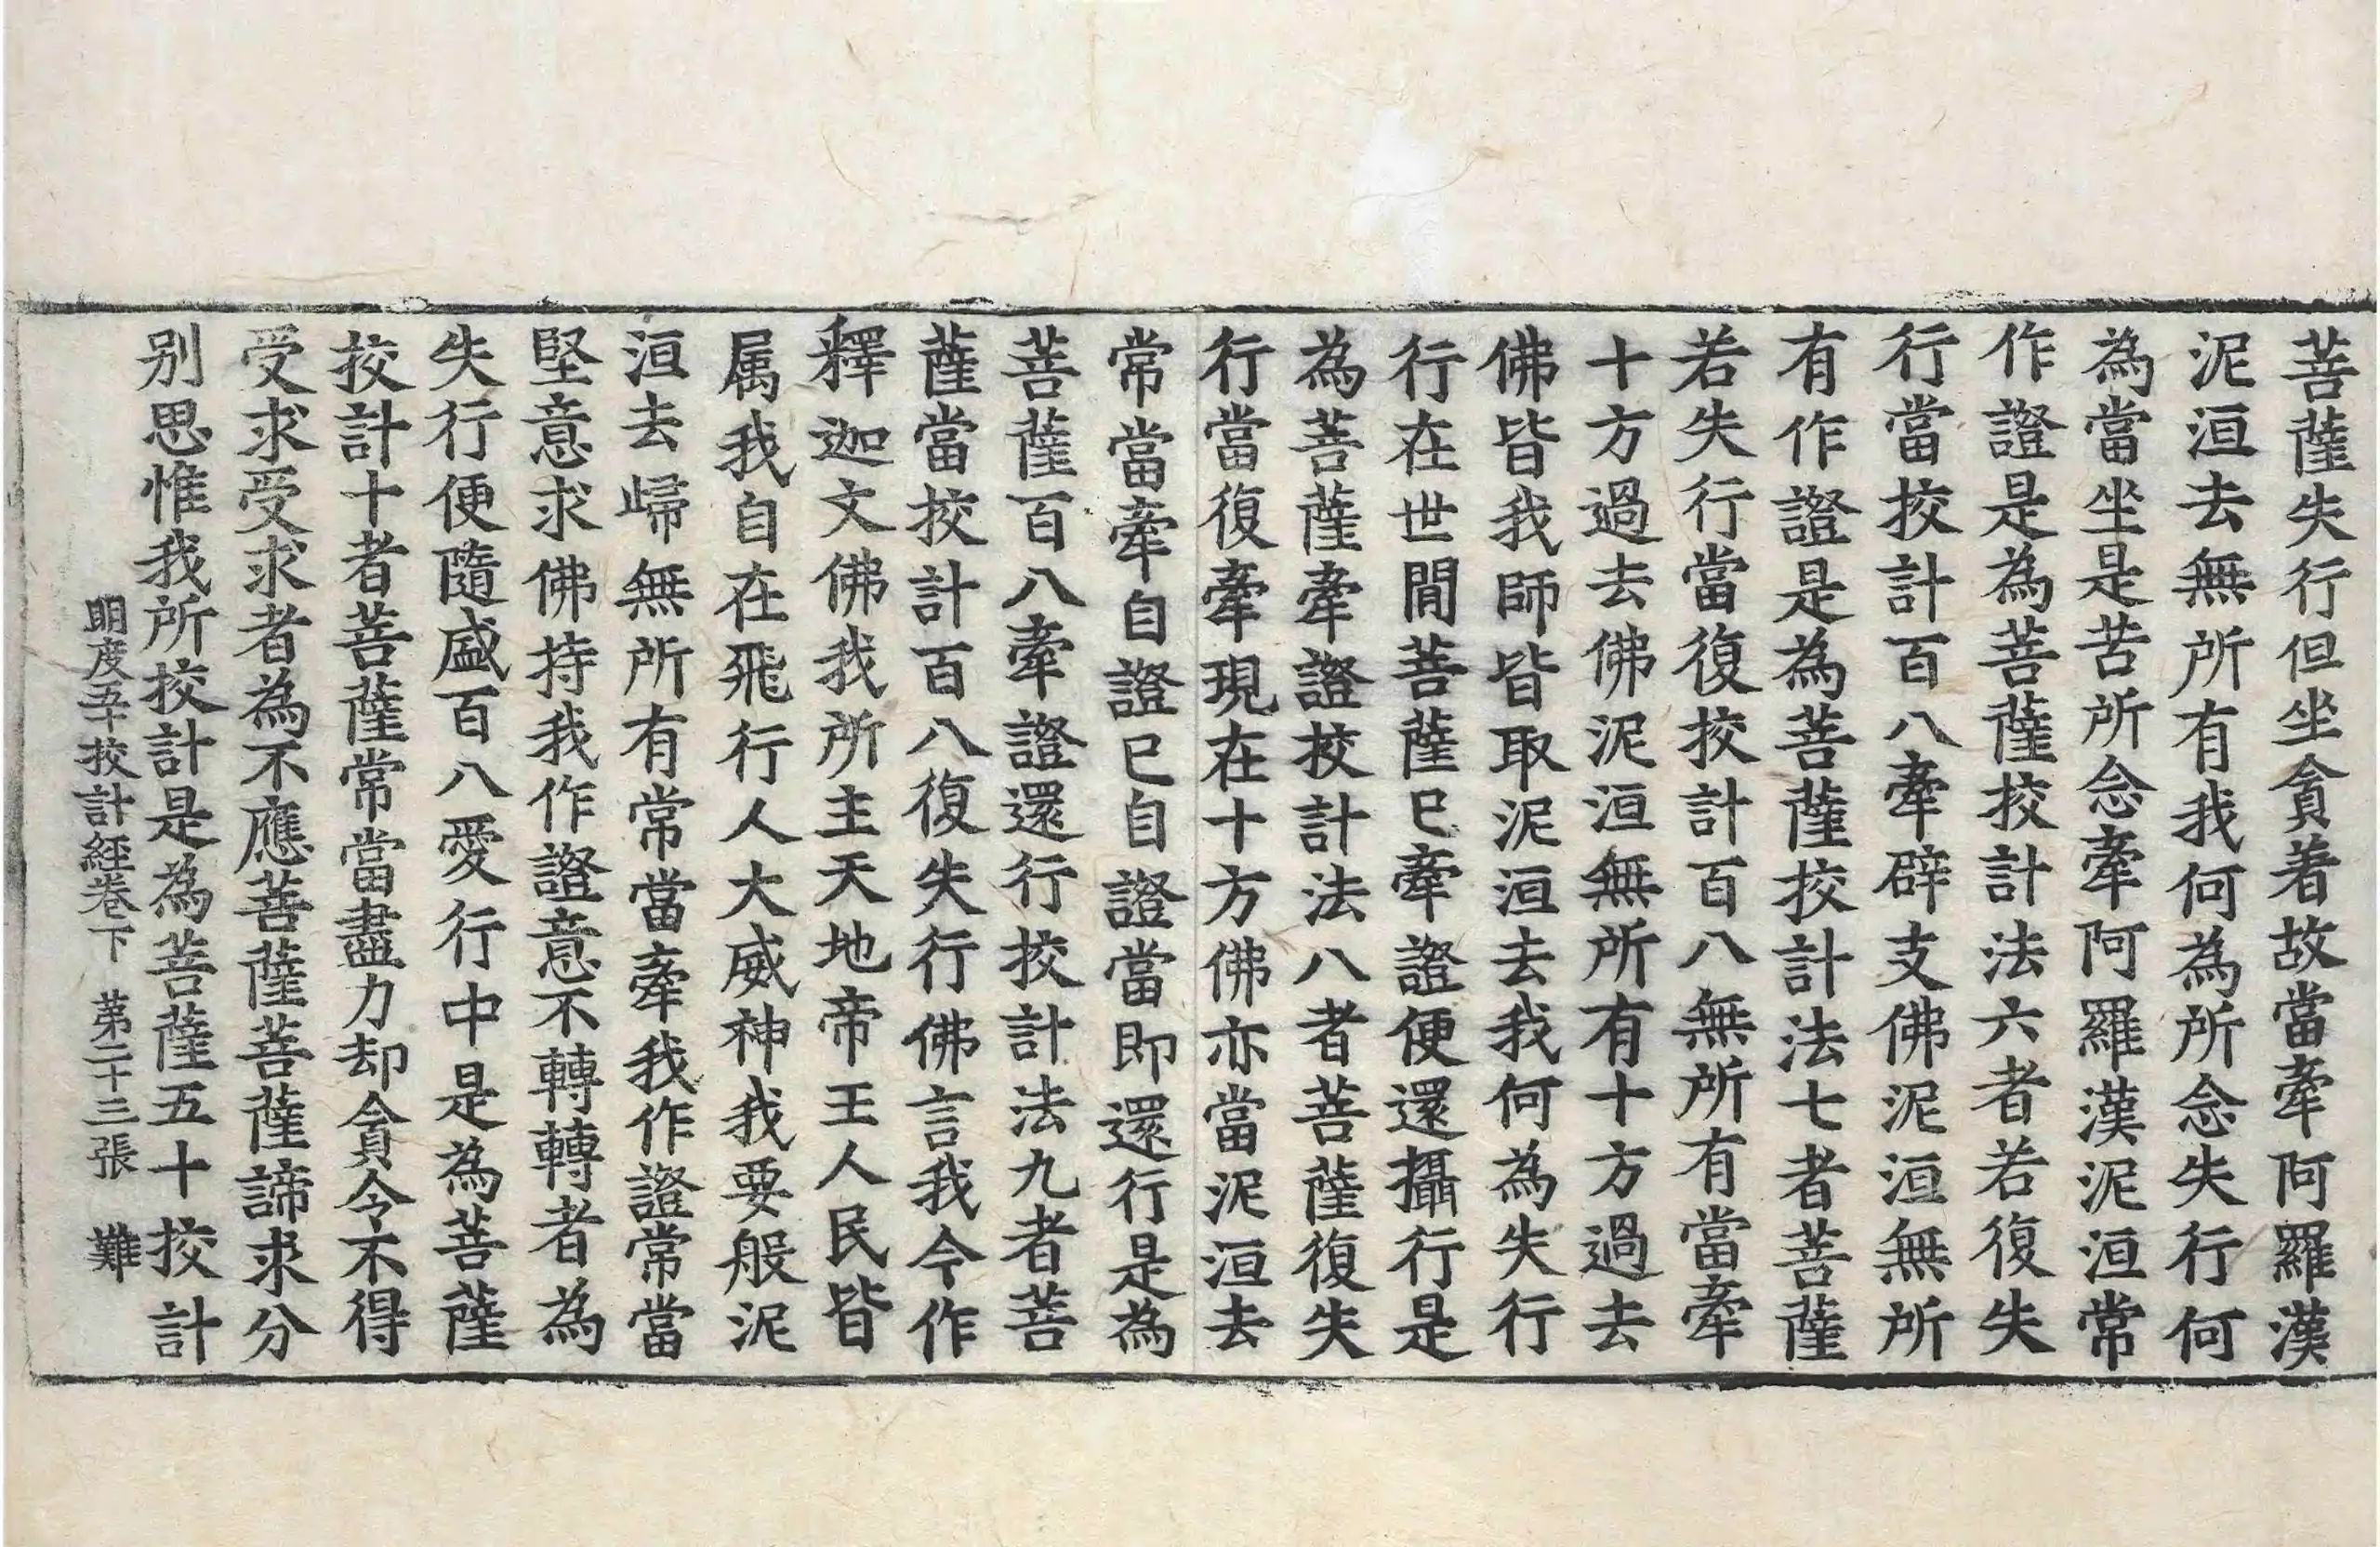 菩薩失行但坐貪著故當牽阿羅漢
泥洹去無所有我何為所念失行何
為當坐是苦所念牽阿羅漢泥洹常
作證是為菩薩挍計法六者若復失
行當挍計百八牽辟支佛泥洹無所
有作證是為菩薩挍計法七者菩薩
若失行當復挍計百八無所有當牽
十方過去佛泥洹無所有十方過去
佛皆我師皆取泥洹去我何為失行
行在世閒菩薩已牽證便還攝行是
為菩薩牽證挍計法八者菩薩復失
行當復牽現在十方佛亦當泥洹去
常當牽自證已自證當即還行是為
菩薩百八牽證還行挍計法九者菩
薩當挍計百八復失行佛言我今作
釋迦文佛我所主天地帝王人民皆
属我自在飛行人大威神我要般泥
洹去歸無所有常當牽我作證常當
堅意求佛持我作證意不轉轉者為
失行便隨盛百八愛行中是為菩薩
挍計十者菩薩常當盡力却貪令不得
受求受求者為不應菩薩菩薩諦求分
别思惟我所挍計是為菩薩五十挍計
明度五十挍計經卷下 苐二十三張 難